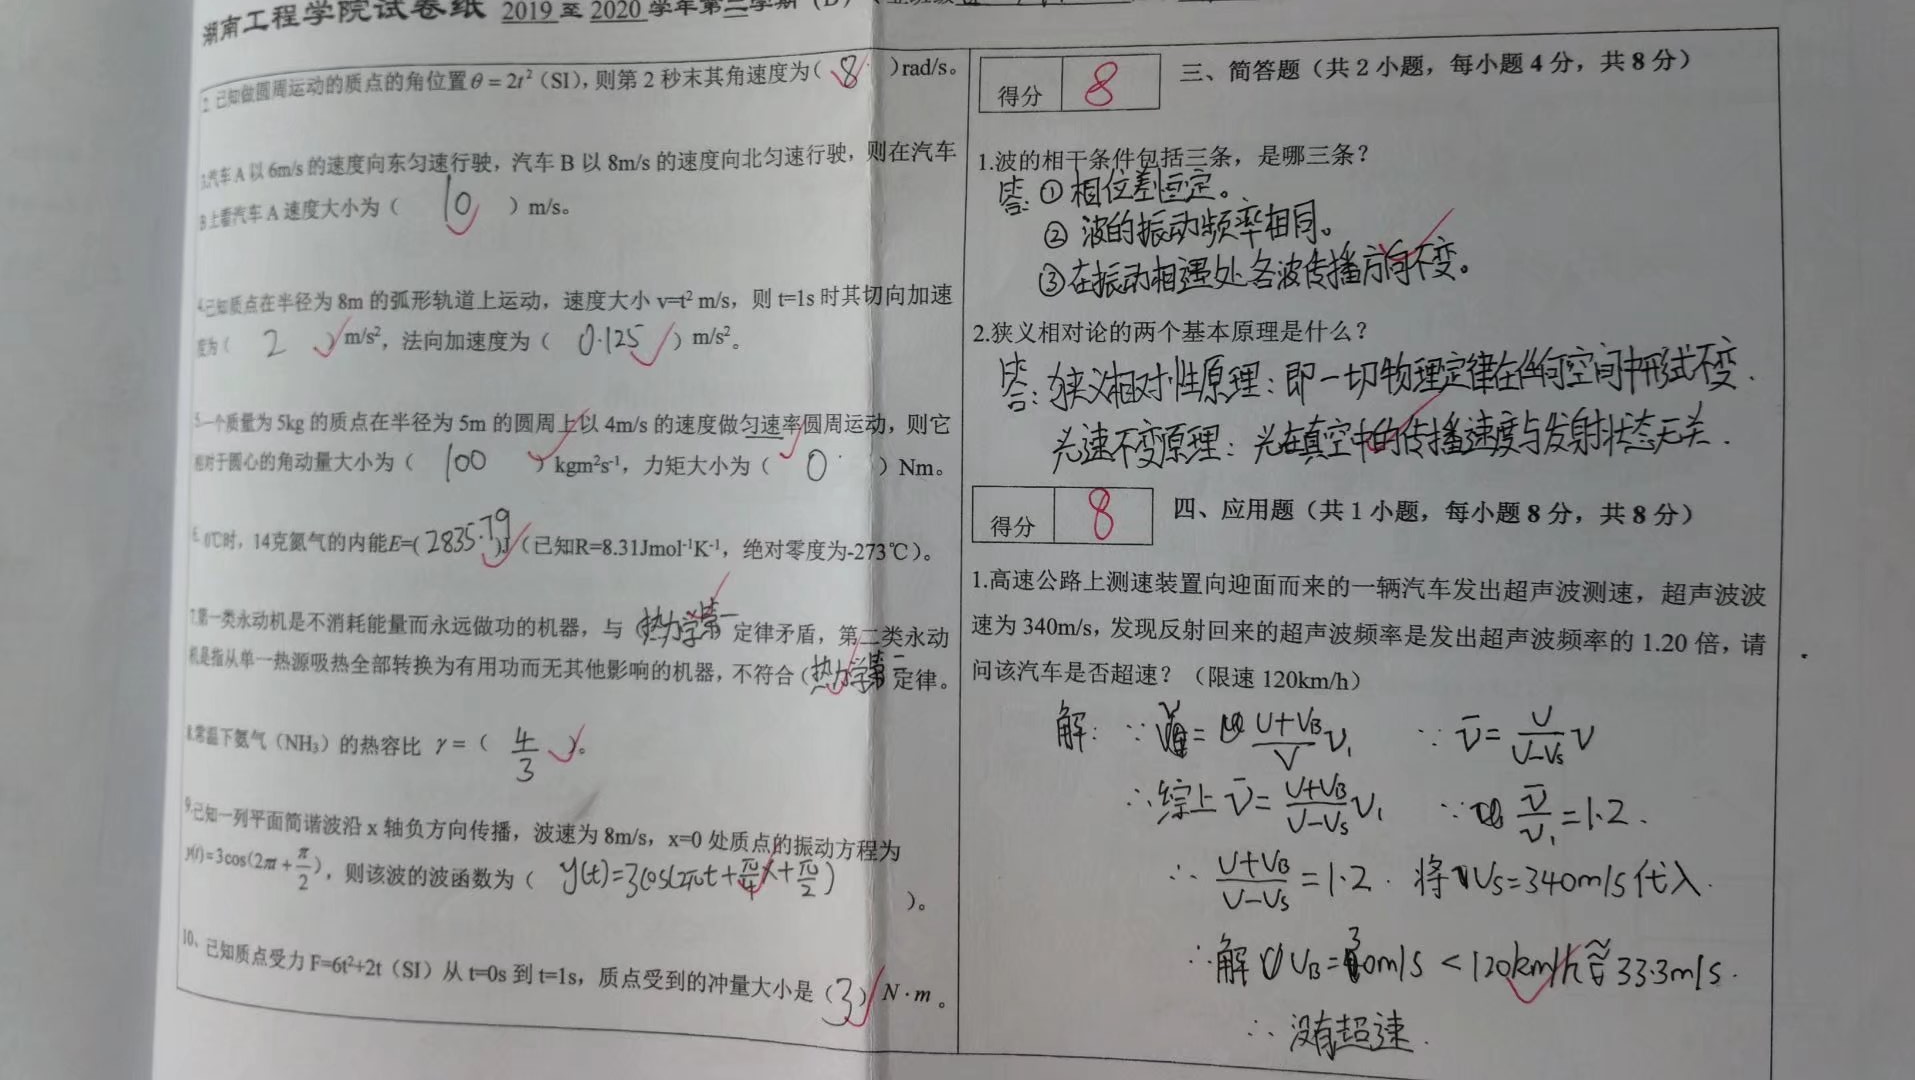 湖南工程学院试卷纸 2019 至 2020 学年第二学期
2. 已知做圆周运动的质点的角位置θ=2t²（SI），则第2秒末其角速度为（ 8 ）rad/s。
3.汽车A以6m/s的速度向东匀速行驶，汽车B以8m/s的速度向北匀速行驶，则在汽车
B上看汽车A速度大小为（ 10 ）m/s。
4.已知质点在半径为8m的弧形轨道上运动，速度大小v=t² m/s，则t=1s时其切向加速
度为（ 2 ）m/s²，法向加速度为（ 0.125 ）m/s²。
5.一个质量为5kg的质点在半径为5m的圆周上以4m/s的速度做匀速率圆周运动，则它
相对于圆心的角动量大小为（ 100 ）kgm²s⁻¹，力矩大小为（ 0 ）Nm。
6. 0℃时，14克氮气的内能E=( 2835.79 )J（已知R=8.31Jmol⁻¹K⁻¹，绝对零度为-273℃）。
7.第一类永动机是不消耗能量而永远做功的机器，与（热力学第一 定律矛盾，第二类永动
机是指从单一热源吸热全部转换为有用功而无其他影响的机器，不符合（热力学第二 定律。
8.常温下氨气（NH₃）的热容比 γ=（ 4/3 ）。
9.已知一列平面简谐波沿x轴负方向传播，波速为8m/s，x=0处质点的振动方程为
y(t)=3cos(2πt+π/2)，则该波的波函数为（ y(t)=3cos(2πt+π/4 x+π/2)
）。
10、已知质点受力F=6t²+2t（SI）从t=0s到t=1s，质点受到的冲量大小是（3）N·m。
得分 8 三、简答题（共2小题，每小题4分，共8分）
1.波的相干条件包括三条，是哪三条？
答:①相位差恒定。
②波的振动频率相同。
③在振动相遇处各波传播方向不变。
2.狭义相对论的两个基本原理是什么？
答:狭义相对性原理：即一切物理定律在任何空间中形式不变.
光速不变原理：光在真空中的传播速度与发射状态无关.
得分 8 四、应用题（共1小题，每小题8分，共8分）
1.高速公路上测速装置向迎面而来的一辆汽车发出超声波测速，超声波波
速为340m/s，发现反射回来的超声波频率是发出超声波频率的1.20倍，请
问该汽车是否超速？（限速120km/h）
解: ∵ = (U+V_B)/V ν₁ ∵ ν̄ = U/(U-Vs) ν
∴综上 ν̄ = (U+V_B)/(U-Vs) ν₁ ∵ ν̄/ν₁ =1.2.
∴ (U+V_B)/(U-Vs) =1.2. 将 Vs=340m/s代入.
∴解 U_B=30m/s <120km/h≈33.3m/s.
∴没有超速.